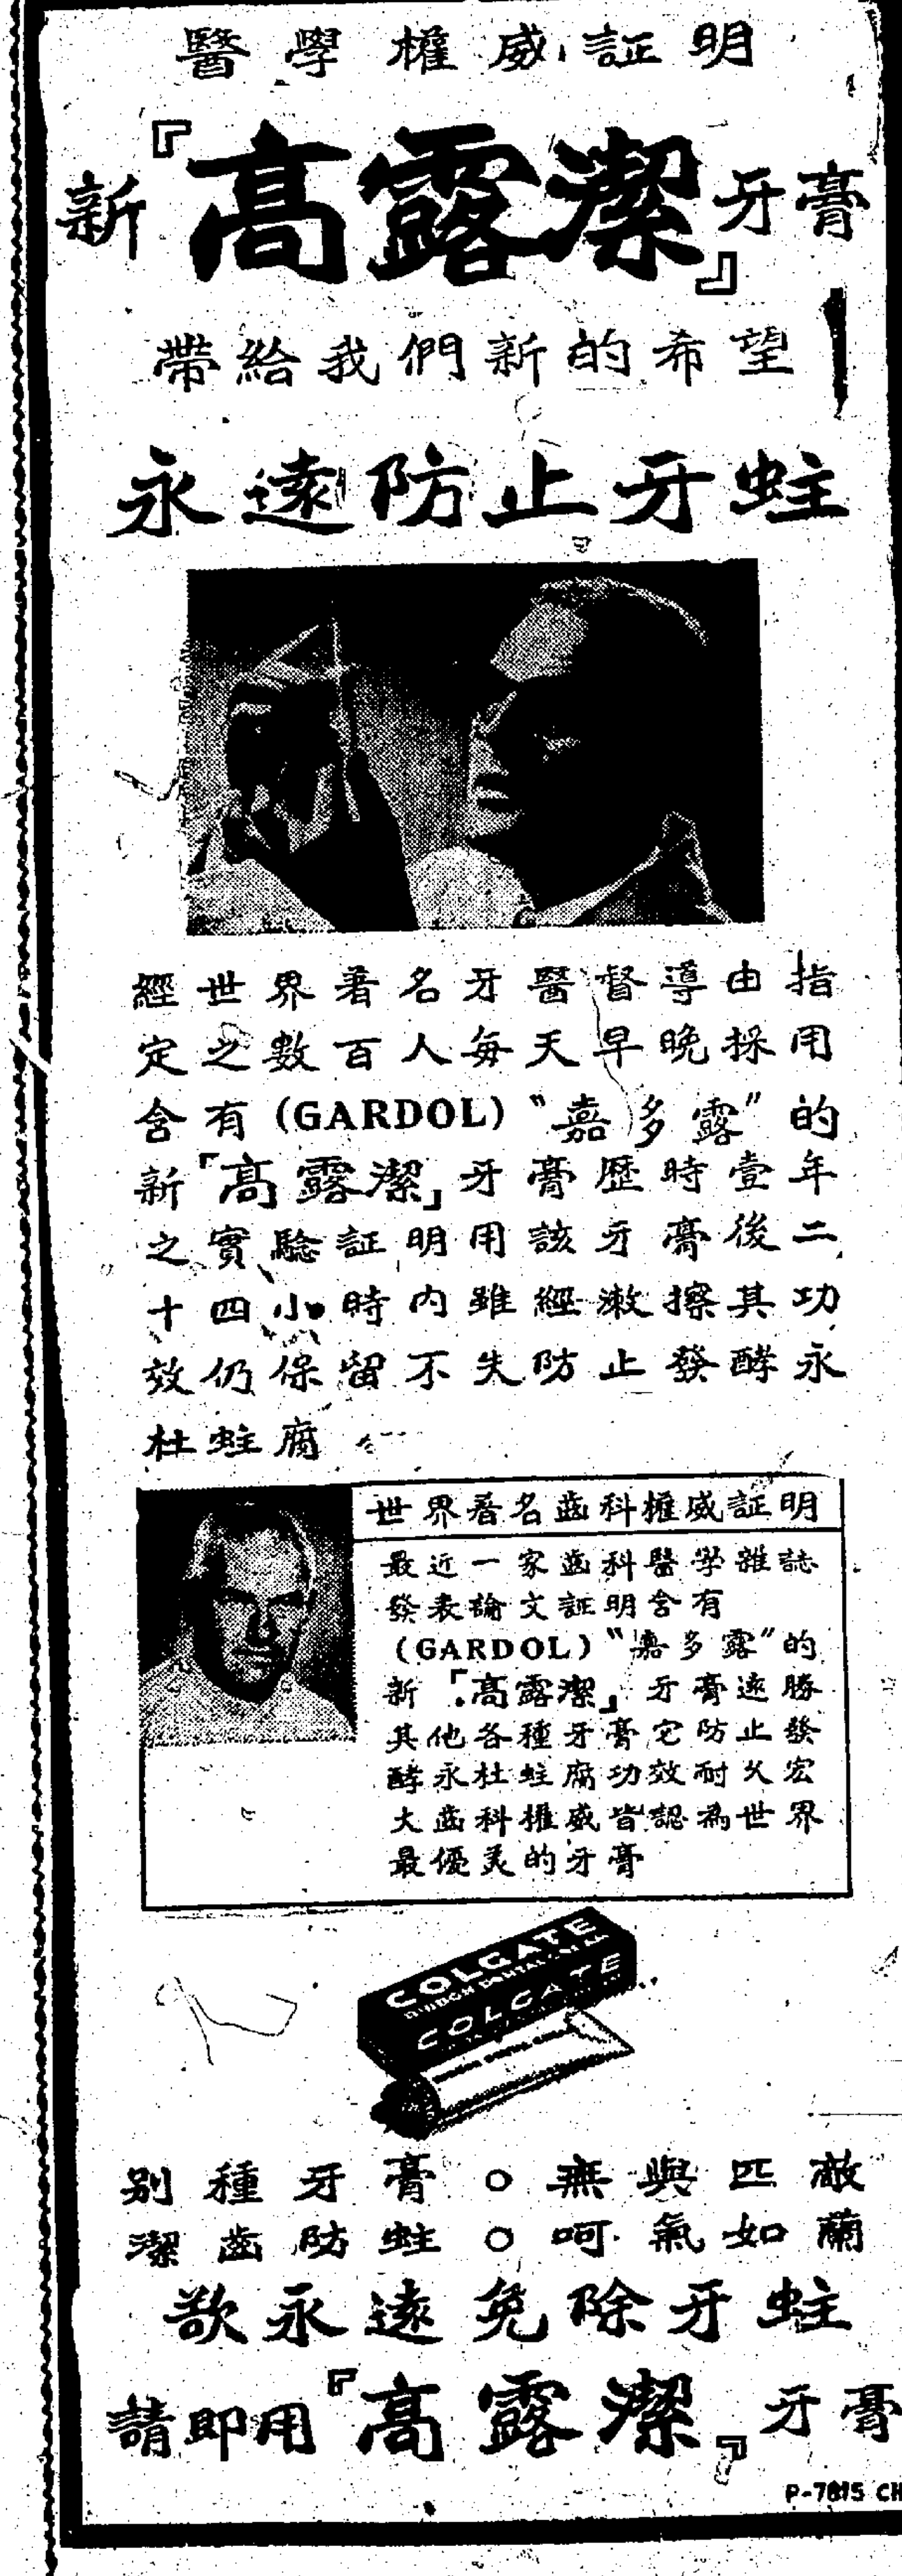 醫學權威証明
新『高露潔』牙膏
帶給我們新的希望
永遠防止牙蛀
經世界著名牙醫督導由指
定之數百人每天早晚採用
含有(GARDOL)“嘉多露”的
新「高露潔」牙膏歷時壹年
之實驗証明用該牙膏後二
十四小時內雖經漱擦其功
效仍保留不失防止發酵永
杜蛀腐
世界著名齒科權威証明
最近一家齒科醫學雜誌
發表論文証明含有
(GARDOL)“嘉多露”的
新「高露潔」牙膏遠勝
其他各種牙膏它防止發
酵永杜蛀腐功效耐久宏
大齒科權威皆認為世界
最優美的牙膏
COLGATE
RIBBON DENTAL CREAM
COLGATE
別種牙膏。無與匹敵
潔齒防蛀。呵氣如蘭
欲永遠免除牙蛀
請即用『高露潔』牙膏
P-7815 CH